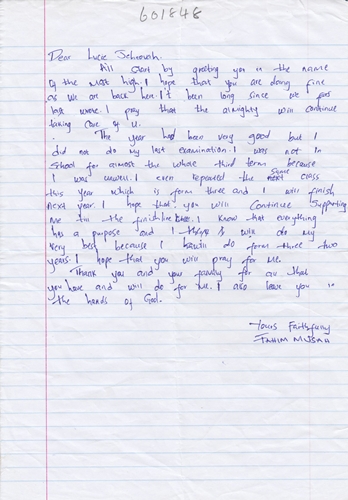 601848
Dear Lucie
I'll start by greeting you in the name
of the most high. I hope that you are doing fine
as we are back here. It been long since we
last wrote. I pray that the almighty will continue
taking care of u.
The year had been very good but I
did not do my last examination. I was not in
School for almost the whole third term because
I was unwell. I even repeated the same class
this year which is form three and I will finish
next year. I hope that you will Continue Supporting
me till the finish line. I know that everything
has a purpose and I will do my
very best because I do form three two
years. I hope that you will pray for me.
Thank you and your family for all that
you have and will do for me. I also leave you in
the hands of God.
Yours Faithfully